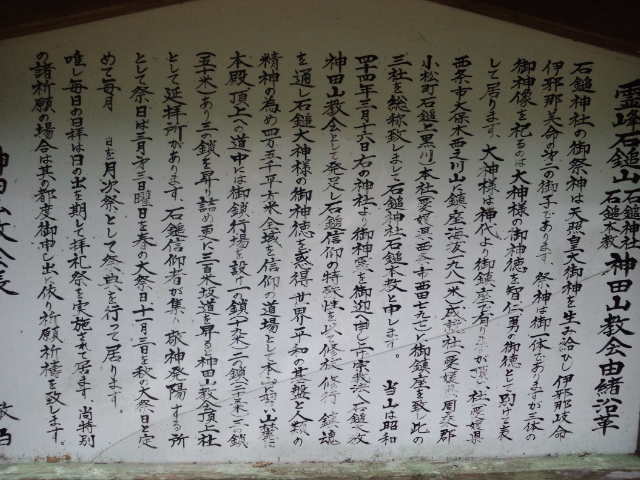 霊峰石鎚山石鎚神社石鎚本教神田山教会由緒沿革
石鎚神社の御祭神は天照皇大御神を生み給ひし伊邪那岐命
伊邪那美命の第二の御子であります。祭神は御一体でありますが三体の
御神像を祀るのは大神様の御神徳を智仁勇の御徳として別けて表
して居ります、大神様は神代より御鎮座
西条市大保木西之川山に鎮座海抜一九八二米成就社愛媛県周桑郡
小松町石鎚黒川本社愛媛県西条市西田に御鎮座を致し此の
三社を総称致しまして石鎚神社石鎚本教と申します。 当山は昭和
四十四年三月十六日右の神社より御神霊を御迎へ申し
神田山教会として発足し石鎚信仰の特殊性を以て修祓修行鎮魂
を通し石鎚大神様の御神徳を感得世界平和の基盤と人類の
精神の為め四万五千平方米全域を信仰の道場として本山
本殿頂上への道中には御鎖行場を設け一の鎖十八米二の鎖二十米三の鎖
(五十米)あり三の鎖を昇り詰め更に三百米坂道を昇ると神田山教会頂上社
として延拝所があります。石鎚信仰者が集ひ敬神発陽する所
として祭日は三月第三日曜日を春の大祭日十一月三日を秋の大祭日と定
めて毎月 日を月次祭として祭典を行って居ります。
唯し毎日の日拝は日の出を期して拝礼祭を実施されて居ます。尚特別
の諸祈願の場合は其の都度御申し出に依り祈願祈祷を致します。
神田山教会長